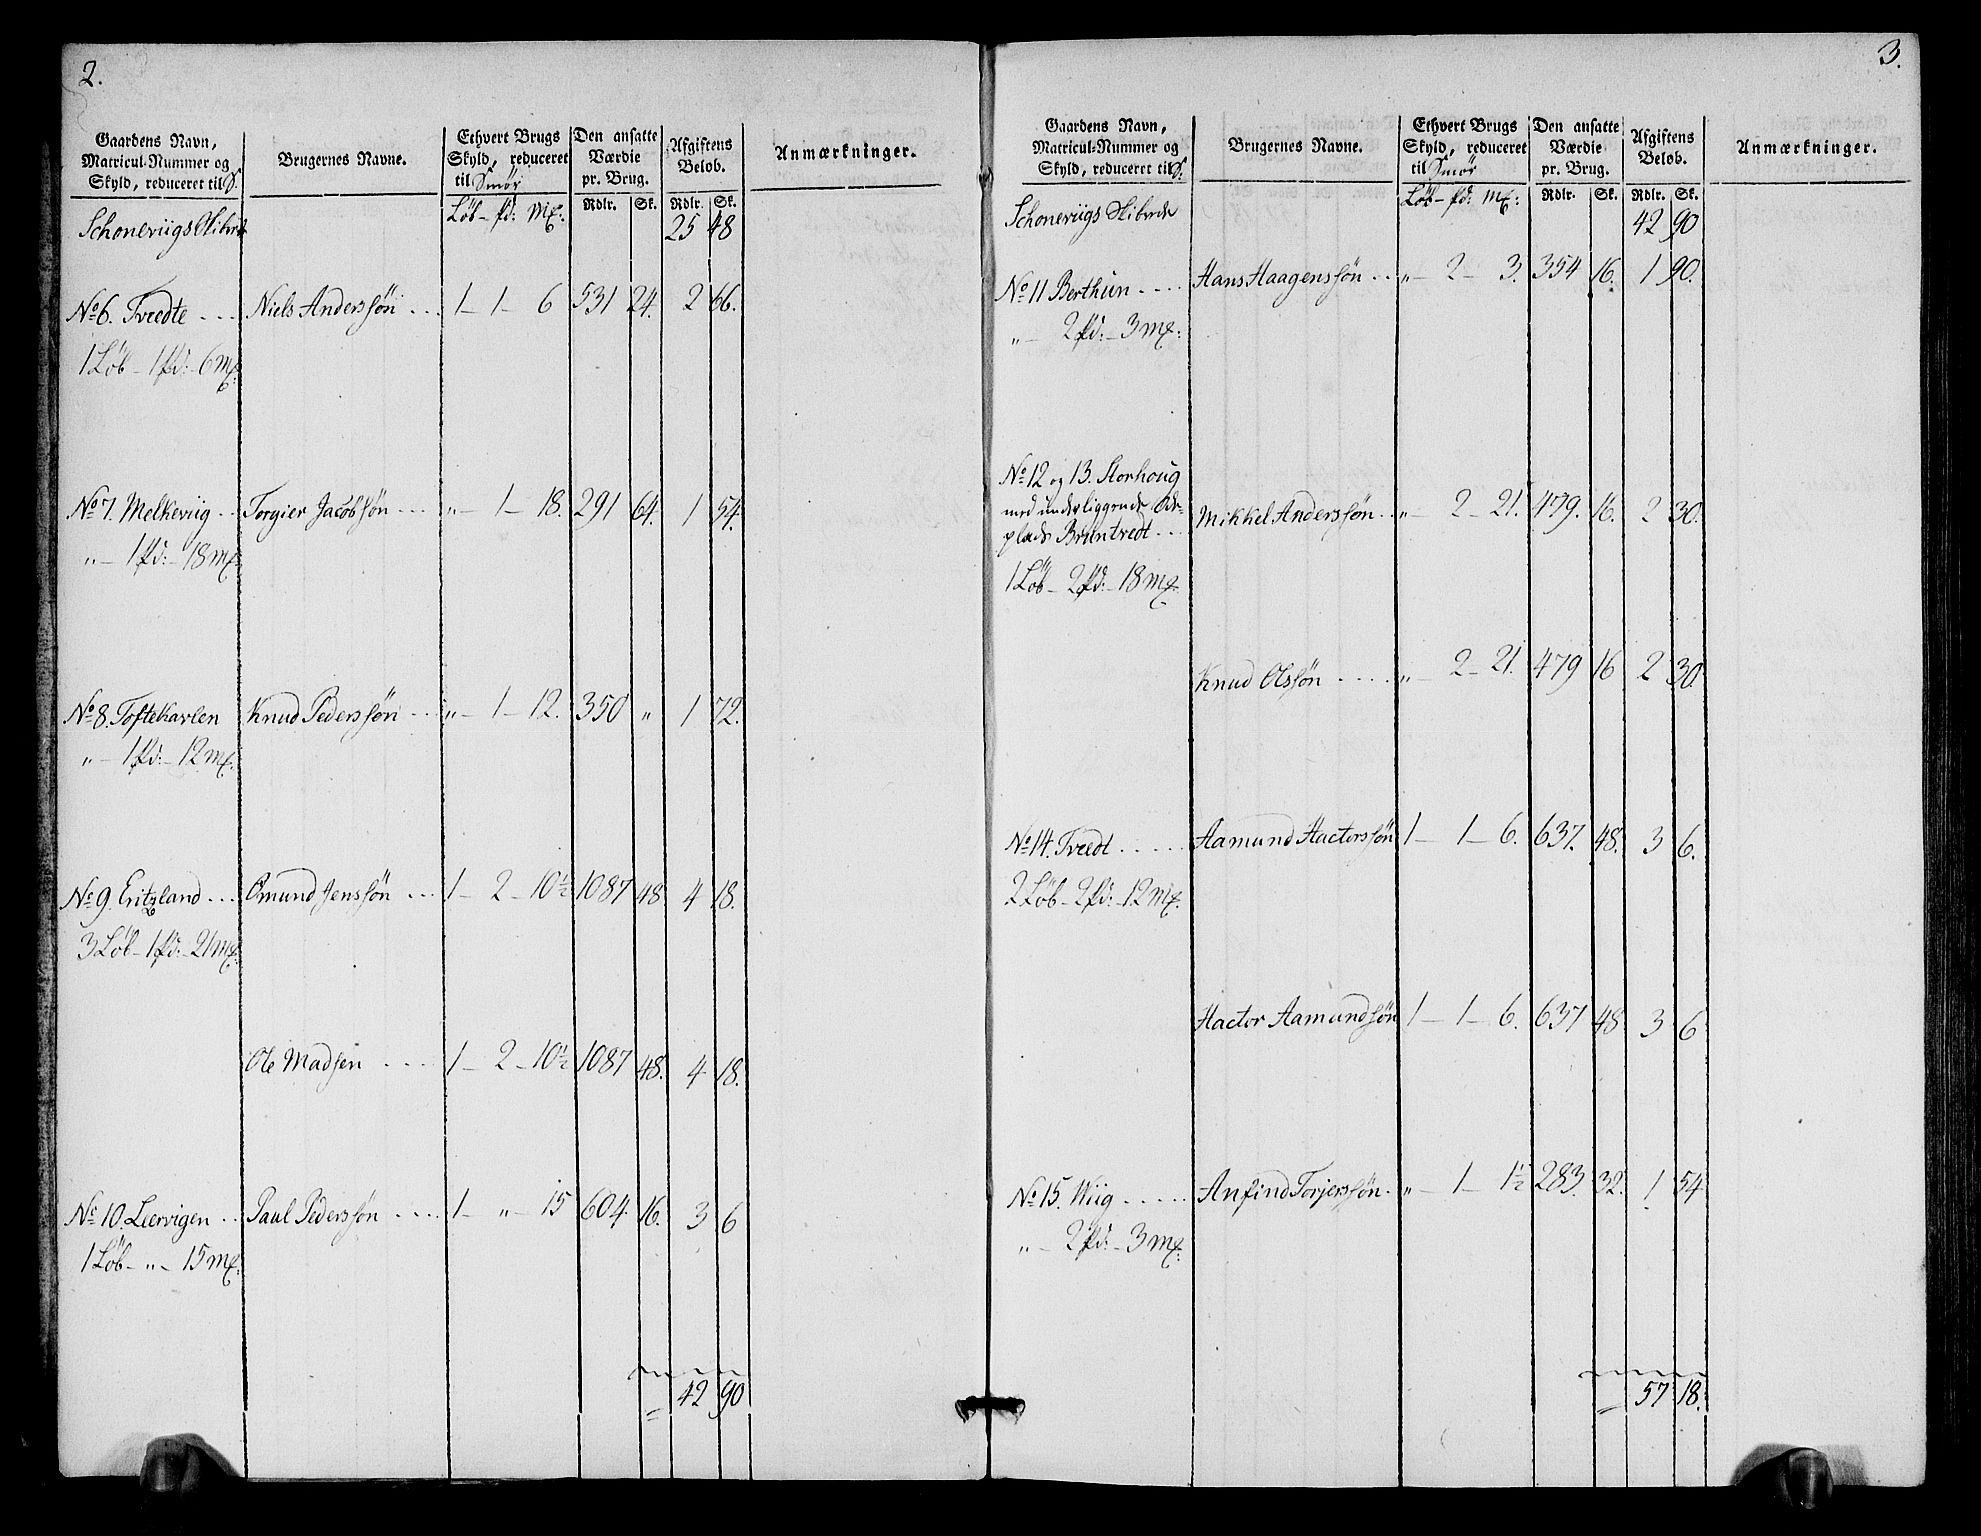 2.
Gaardens Navn,
Matricul-Nummer og
Skyld, reduceret til S.
Brugernes Navne.
Ethvert Brugs
Skyld, reduceret
til Smör
Den ansatte
Værdie
pr. Brug.
Afgiftens
Beløb.
Anmærkninger.
Löb - pd: Mk: Rdlr. Sk. Rdlr. Sk.
Schoneviigs Skibrede 25 48
No 6. Tvedte . . . Niels Anderssön . . . 1 - 1 - 6 531 24. 2 66.
1 Löb - 1 pd: - 6 mk:
No 7. Melkeviig . . Torgier Jacobsön . . . " - 1 - 18. 291 64. 1 54.
" - 1 pd: - 18 mk:
No 8. Toftekarlen Knud Pederssön . . . " - 1 - 12. 350 " 1 72.
" - 1 pd: - 12 mk:
No 9. Eritzland . . . Omund Jenssön . . . 1 - 2 - 10½ 1087 48. 4 18.
3 Löb - 1 pd: - 21 mk:
Ole Madsen . . . . 1 - 2 - 10½ 1087 48. 4 18.
No 10. Leervigen . . Paul Pederssön . . . . 1 - " - 15 604. 16. 3 6
1 Löb - " - 15 mk:
42 90
3.
Gaardens Navn,
Matricul-Nummer og
Skyld, reduceret til S.
Brugernes Navne.
Ethvert Brugs
Skyld, reduceret
til Smör
Den ansatte
Værdie
pr. Brug.
Afgiftens
Beløb.
Anmærkninger.
Löb - pd: Mk: Rdlr. Sk. Rdlr. Sk.
Schoneviigs Skibrede 42 90
No 11 Berthun . . . . Hans Haagenssön . . " - 2 - 3. 354 16. 1 90.
" - 2 pd: - 3 mk:
No 12 og 13. Storhoug
med underliggende Öde-
plads Bruntvedt . . . Mikkel Anderssön . . " - 2 - 21. 479. 16. 2 30.
1 Löb - 2 pd: - 18 mk:
Knud Olssön . . . . . " - 2 - 21. 479 16 2 30.
No 14. Tvedt . . . . . Aamund Hactorssön 1 - 1 - 6. 637. 48. 3 6.
2 Löb - 2 pd: - 12 mk:
Hactor Aamundssön 1 - 1 - 6. 637 48 3 6
No 15. Wiig . . . . . Anfind Torjerssön. " - 1 - 1½ 283. 32. 1 54
" - 2 pd: - 3 mk:
57 18.